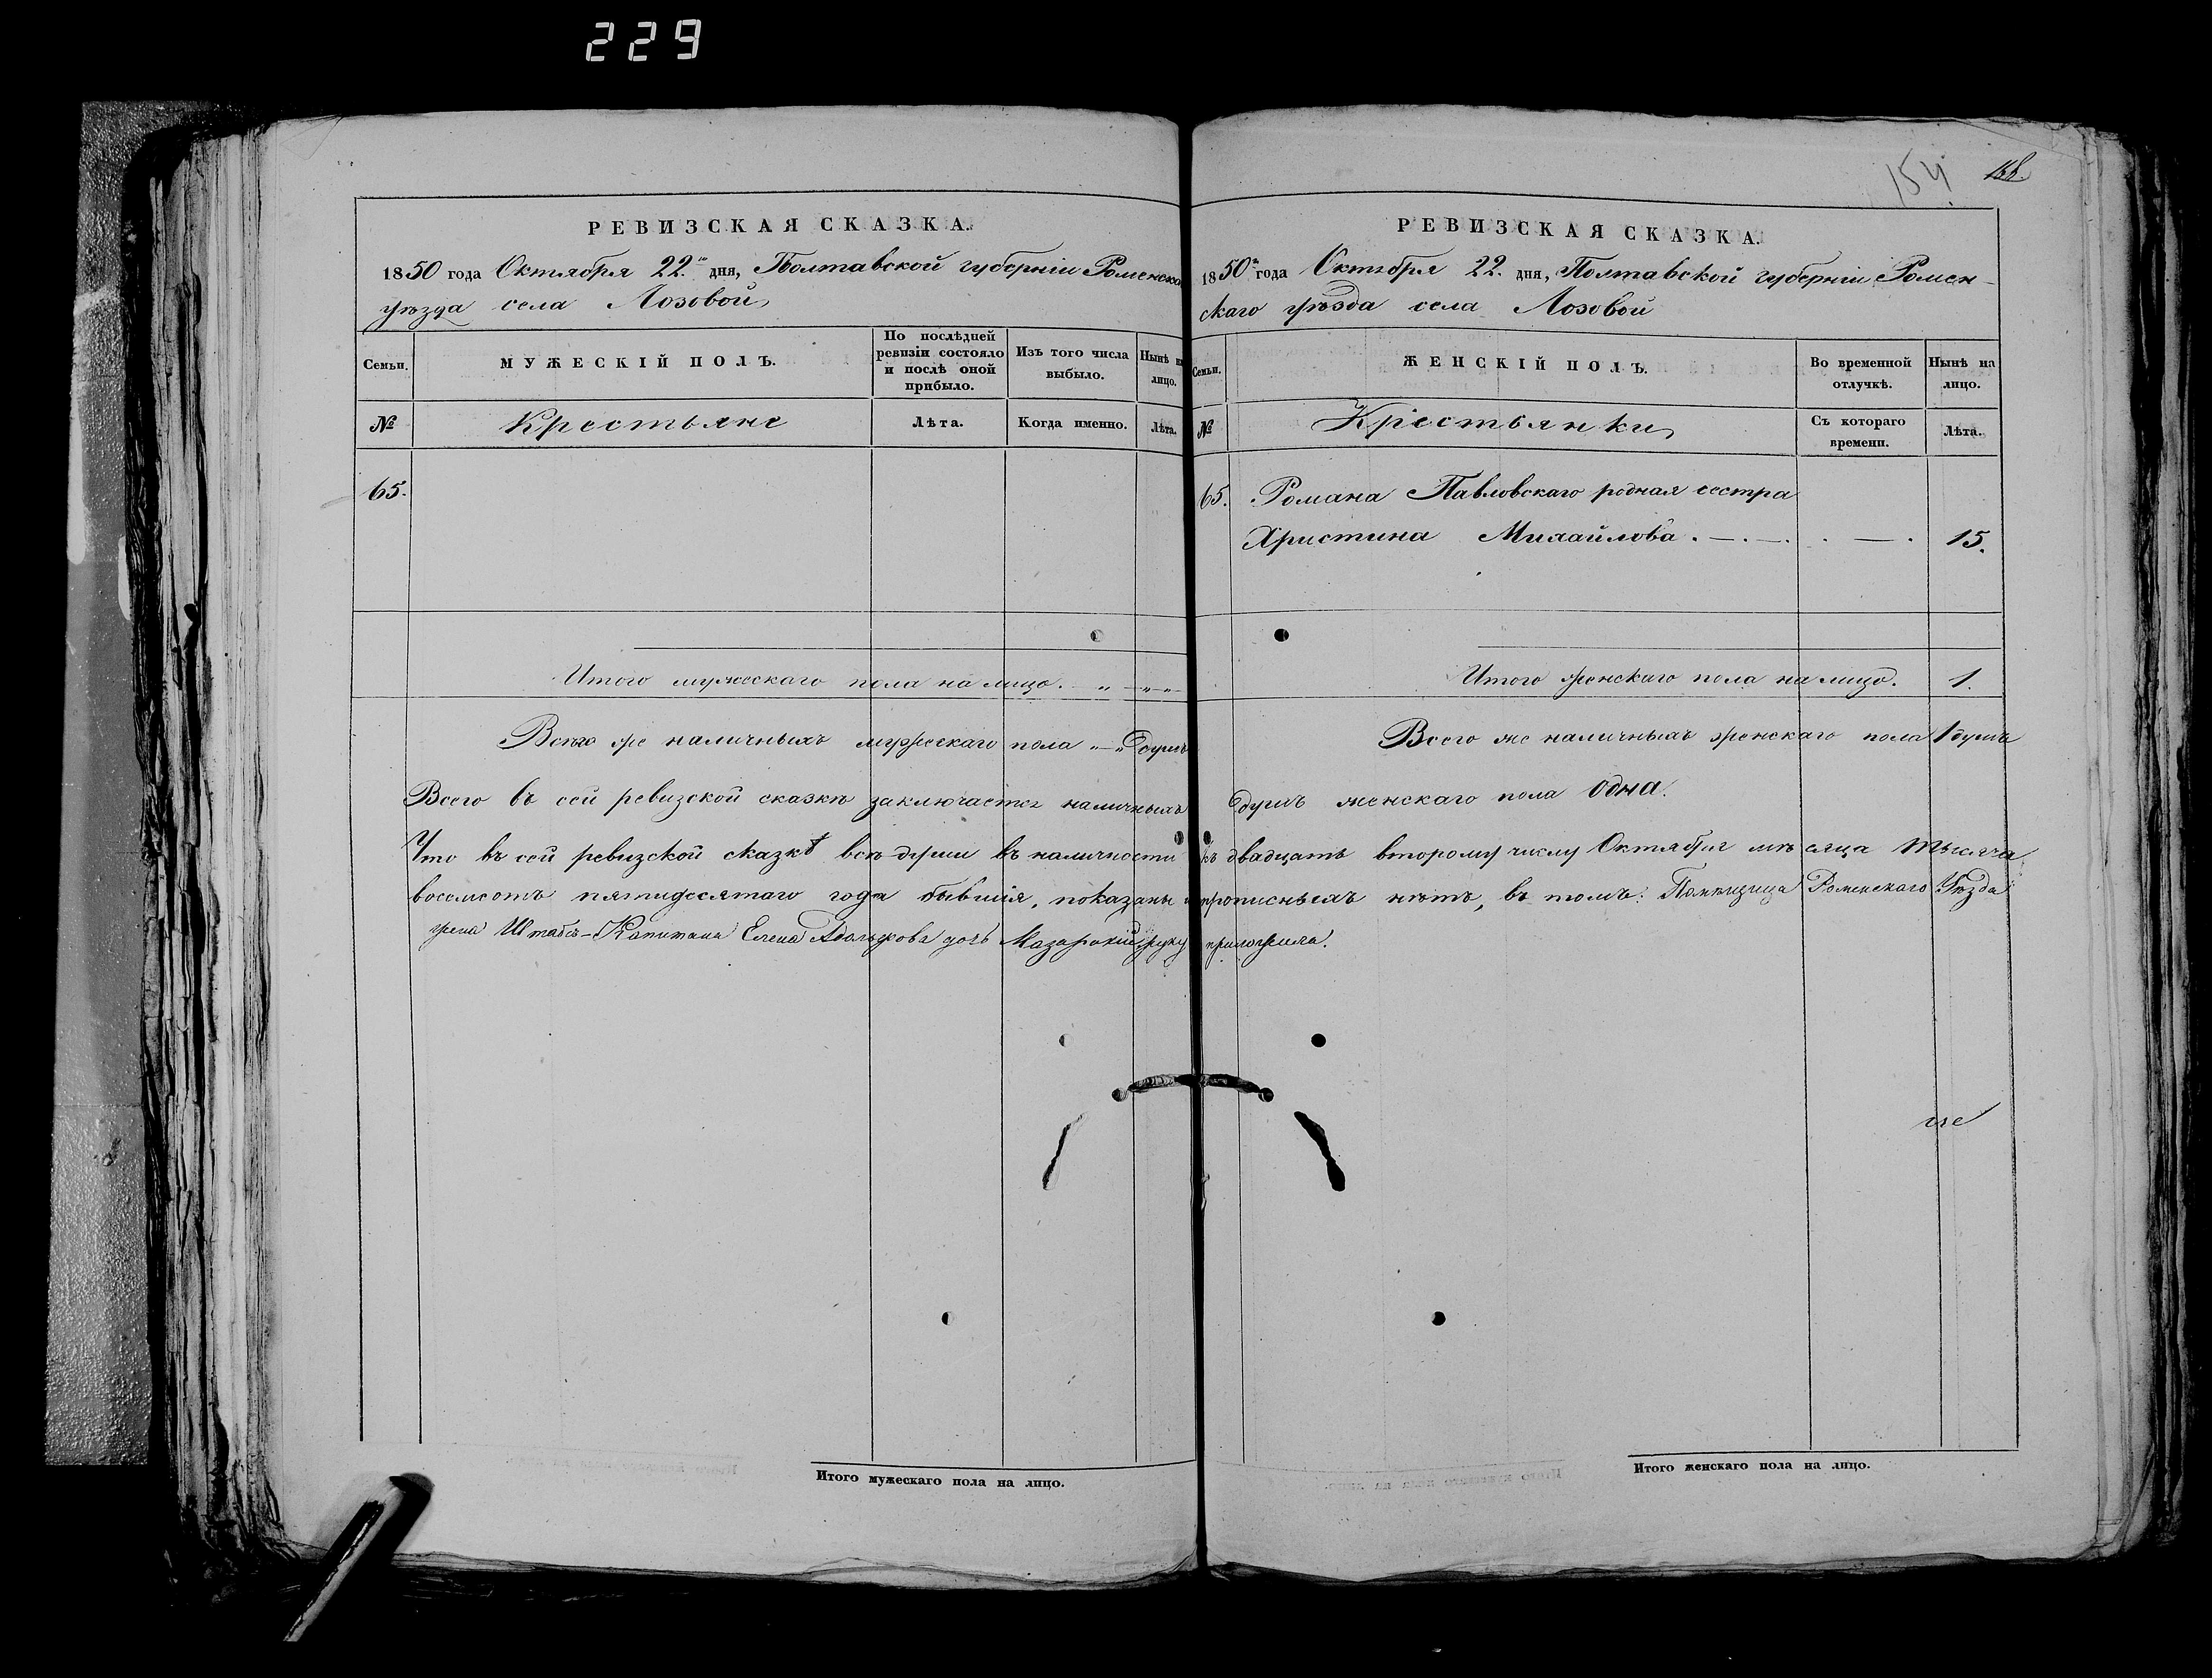 229
154
РЕВИЗСКАЯ СКАЗКА.
1850 года Октября 22.го дня, Полтавской губерніи Роменска
уѣзда села Лозовой
Семьи.
МУЖЕСКІЙ ПОЛЪ.
По послѣдней ревизіи состояло и послѣ оной прибыло.
Изъ того числа выбыло.
Нынѣ на лицо.
№
Крестьяне
Лѣта.
Когда именно.
Лѣта.
65.
Итого мужескаго пола на лицо. „ – „ – „
Всего же наличныхъ мужескаго пола „ – „ душъ
Всего въ сей ревизской сказкѣ заключается наличныхъ
Что въ сей ревизской сказкѣ всѣ души въ наличности
восемсотъ пятидесятаго года бывшія, показаны и
жена Штабсъ-Капитана Елена Адольфова дочь Мазараки руку
Итого мужескаго пола на лицо.
РЕВИЗСКАЯ СКАЗКА.
1850 года Октября 22. дня, Полтавской губерніи Ромен-
скаго уѣзда села Лозовой
Семьи.
ЖЕНСКІЙ ПОЛЪ.
Во временной отлучкѣ.
Нынѣ на лицо.
№
Крестьянки
Съ котораго времени.
Лѣта.
65. Романа Павловскаго родная сестра
Христина Михайлова . – . – . . – . 15.
Итого женскаго пола на лицо. 1.
Всего же наличныхъ женскаго пола 1 душъ
душъ женскаго пола одна.
къ двадцать второму числу Октября мѣсяца тысяча
прописныхъ нѣтъ, въ томъ: Помѣщица Роменскаго Уѣзда
приложила.
Итого женскаго пола на лицо.